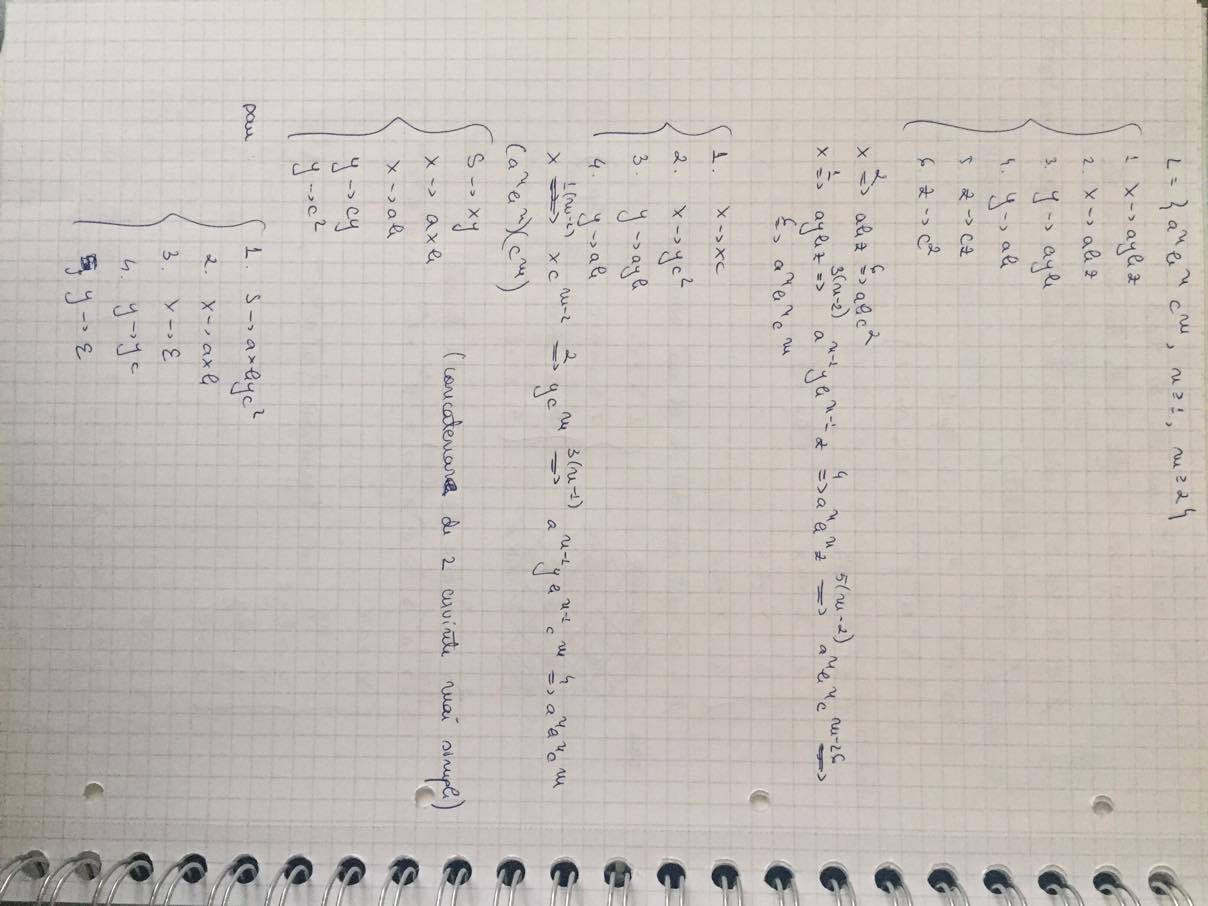 L = { aⁿ bⁿ cᵐ, n≥1, m≥2 }
1 x → aybz
2. x → abz
3. y → ayb
4. y → ab
5 z → cz
6 z → c²
x ²⇒ abz ⁶⇒ abc²
x ¹⇒ aybz ³⁽ⁿ⁻²⁾⇒ aⁿ⁻¹ybⁿ⁻¹z ⁴⇒ aⁿbⁿz ⁵⁽ᵐ⁻²⁾⇒ aⁿbⁿcᵐ⁻²z ⇒
⁶⇒ aⁿbⁿcᵐ
1. x → xc
2. x → yc²
3. y → ayb
4. y → ab
x ¹⁽ᵐ⁻²⁾⇒ xcᵐ⁻² ²⇒ ycᵐ ³⁽ⁿ⁻¹⁾⇒ aⁿ⁻¹ybⁿ⁻¹cᵐ ⁴⇒ aⁿbⁿcᵐ
(aⁿbⁿ)(cᵐ)
(concatenarea de 2 cuvinte mai simple)
S → xy
x → axb
x → ab
y → cy
y → c²
sau
1. S → axbyc²
2. x → axb
3. x → ε
4. y → yc
5. y → ε